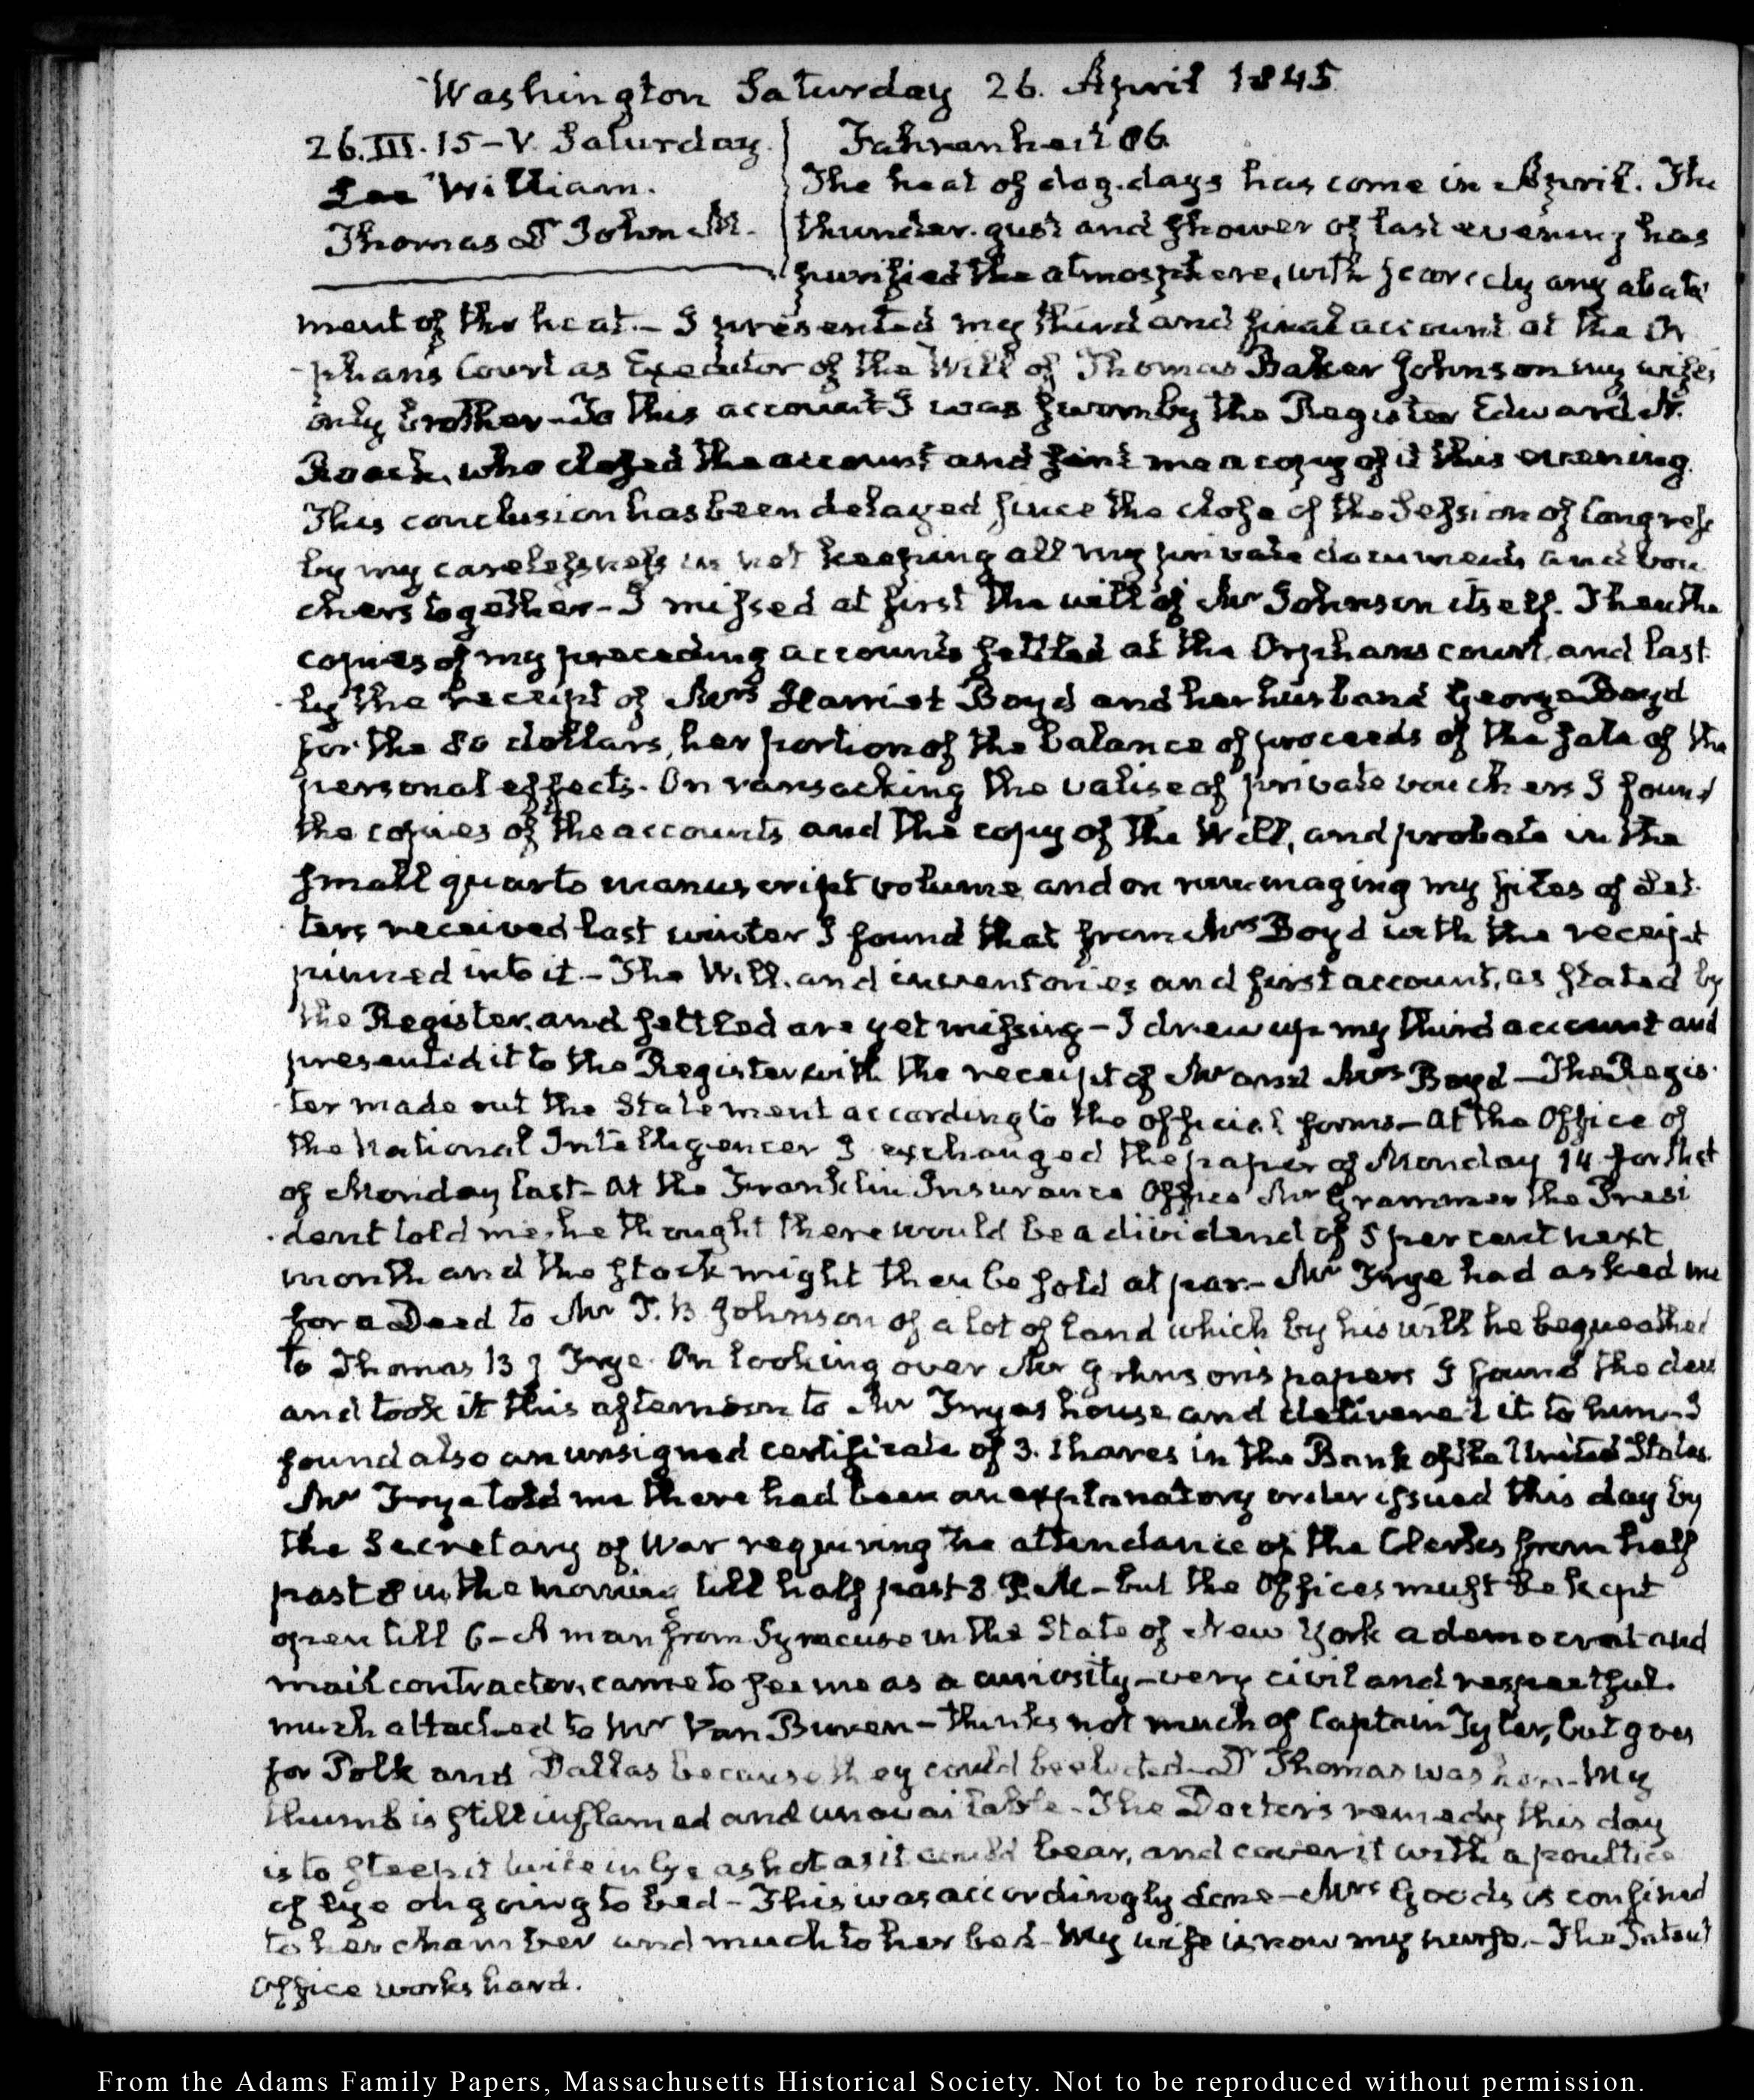 Washington Saturday 26. April 1845
26.III.15-V. Saturday.
Lee William.
Thomas D John M.
Fahrenheit 86
The heat of dog-days has come in April. The
thunder-gust and shower of last evening has
purified the atmosphere, with scarcely any abate
ment of the heat.- I presented my third and final account at the Or
-phans Court as Executor of the Will of Thomas Baker Johnson my wife's
only brother-To this account I was sworn by the Register Edward N.
Roach, who closed the account and sent me a copy of it this evening.
This conclusion has been delayed since the close of the Session of Congress
by my carelessness in not keeping all my private documents and vou
chers together-I missed at first the will of Mr Johnson itself. Then the
copies of my preceding accounts settled at the Orphans court, and last
-ly the receipt of Mrs Harriet Boyd and her husband George Boyd
for the 80 dollars, her portion of the balance of proceeds of the sale of the
personal effects. On ransacking the valise of private vouchers I found
the copies of the accounts and the copy of the Will, and probate in the
small quarto manuscript volume and on rummaging my files of Let-
ters received last winter I found that from Mrs Boyd with the receipt
pinned into it.-The Will, and inventories and first account, as stated by
the Register, and settled are yet missing-I drew up my third account and
presented it to the Register with the receipt of Mr and Mrs Boyd-The Regis-
-ter made out the Statement according to the official forms-At the Office of
the National Intelligencer I exchanged the paper of Monday 14 for that
of Monday last-At the Franklin Insurance Office Mr Grammer the Presi
-dent told me, he thought there would be a dividend of 5 per cent next
month and the stock might then be sold at par.-Mr Frye had asked me
for a Deed to Mr T. B Johnson of a lot of land which by his will he bequeathed
to Thomas B J Frye. On looking over Mr Johnson's papers I found the deed
and took it this afternoon to Mr Fryes house and delivered it to him-I
found also an unsigned certificate of 3. shares in the Bank of the United States.
Mr Frye told me there had been an explanatory order issued this day by
the Secretary of War requiring the attendance of the Clerks from half
past 8 in the morning till half past 3. P.M-but the Offices must be kept
open till 6-A man from Syracuse in the State of New York a democrat and
mail contractor, came to see me as a curiosity-very civil and respectful.
much attached to Mr Van Buren-thinks not much of Captain Tyler, but goes
for Polk and Dallas because they could be elected-Dr Thomas was here-My
thumb is still inflamed and unavailable-The Doctor's remedy this day
is to steep it twice in lye as hot as it could bear, and cover it with a poultice
of lye on going to bed-This was accordingly done-Mrs Goods is confined
to her chamber and much to her bed-My wife is now my nurse.-The Patent
Office works hard.
From the Adams Family Papers, Massachusetts Historical Society. Not to be reproduced without permission.